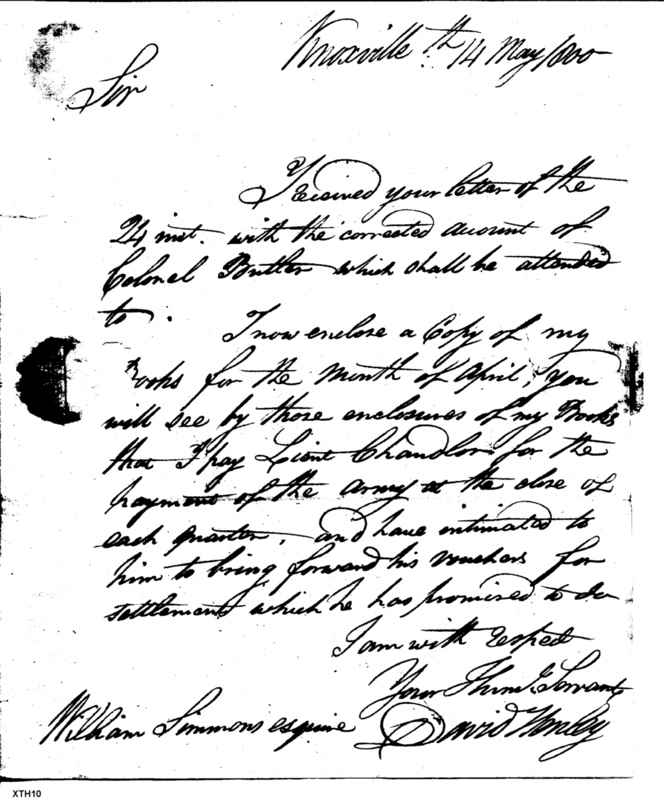 Knoxville th. 14 May 1800
Sir
I received your letter of the
24 inst. with the corrected account of
Colonel Butler which shall be attended
to.
I now enclose a Copy of my
Books for the Month of April, you
will see by those enclosures of my Books
that I pay Lieut Chandler for the
payment of the army at the close of
each quarter, and have intimated to
him to bring forward his vouchers for
settlement which he has promised to do
I am with respect
Your Servant
David Henley
William Simmons esquire
XTH10